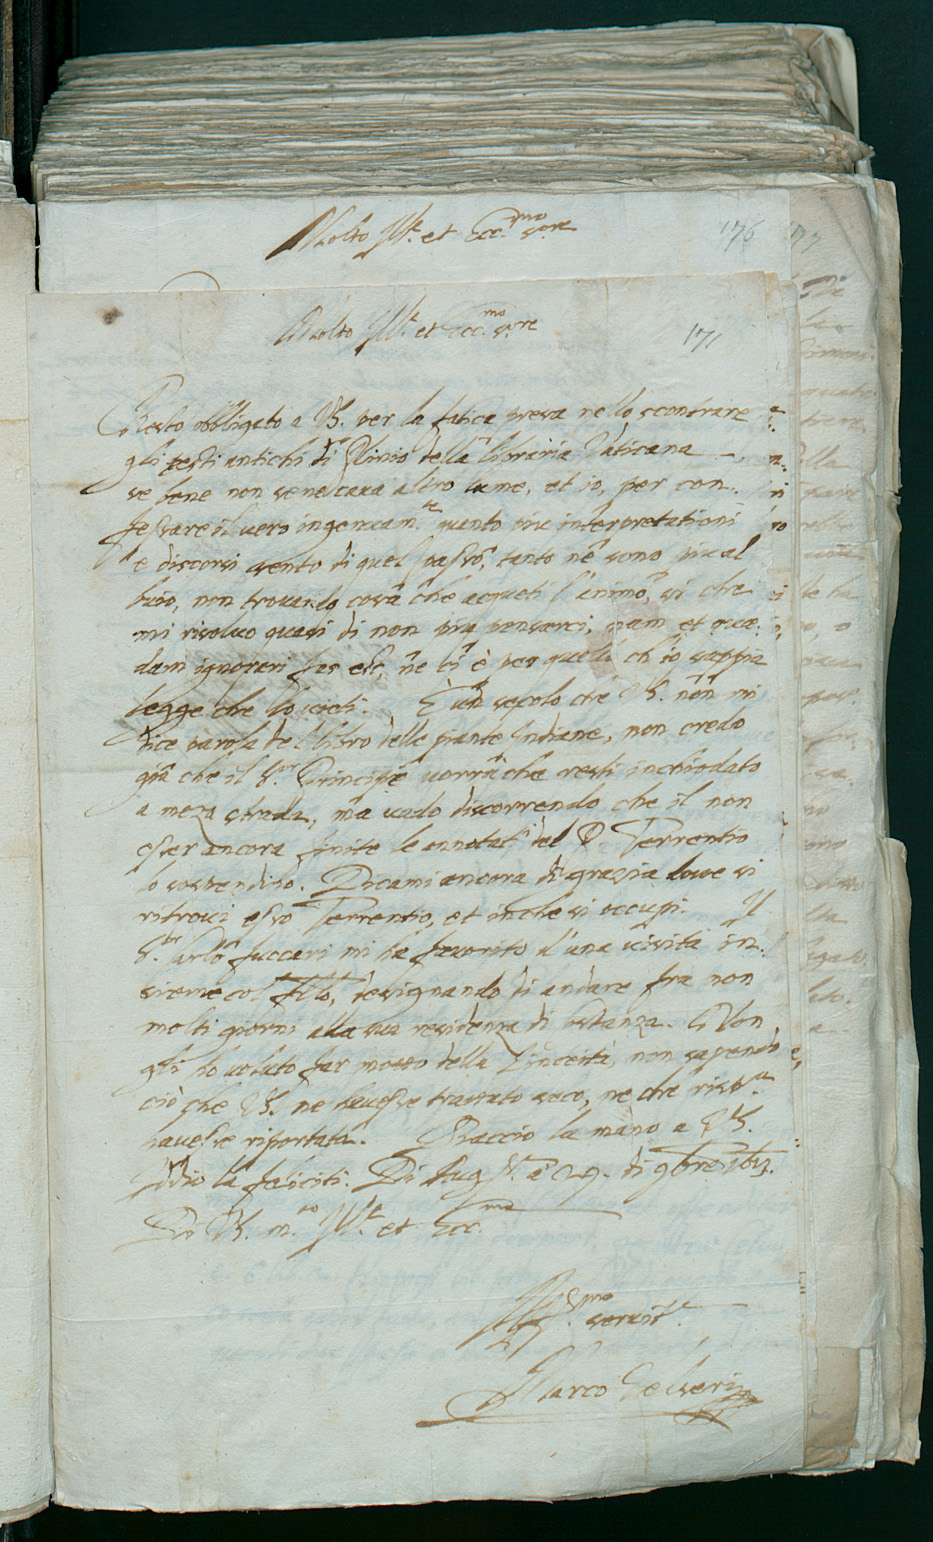 Molto Ill.e et Ecc.mo s.ore
176
177
Molto Ill.e et Ecc.mo s.re
171
Resto obbligato a VS. per la fatica presa nello scontrare
gli testi antichi di Plinio della libraria Vaticana
se bene non sene cava altro lume, et io, per con-
fessare il vero ingenuam.te quanto più interpretationi
e discorsi sento di quel passo, tanto ne sono più al
buio, non trovando cosa che acqueti l'animo, si che
mi risolvo quasi di non più pensarci, nam et quæ-
dam ignorari fas est, ne ci è per quello ch'io sappia
legge che lo vieti. È un secolo che VS. non mi
dice parola del libro delle piante Indiane, non credo
già che il S.or Principe vorrà che resti inchiodato
a meza strada, ma vado discorrendo che il non
esser ancora finite le annotat.i del S. Terrentio
lo sospendino. Dicami ancora di grazia dove si
ritrovi esso Terrentio, et in che si occupi. Il
S.or Carlo fuccari mi ha favorito d'una visita in-
sieme col filo, designando di andare fra non
molti giorni alla sua residenza di Costanza. Non
gli ho voluto far motto della Linceità, non sapendo
ciò che VS. ne havesse trattato seco, ne che risp.ta
havesse riportata. Baccio la mano a VS.
Iddio la feliciti. Di Aug.ta a 29. di 9bre 1613.
Di VS. m.to Ill.e et Ecc.ma
Aff.mo servit.re
Marco Velseri